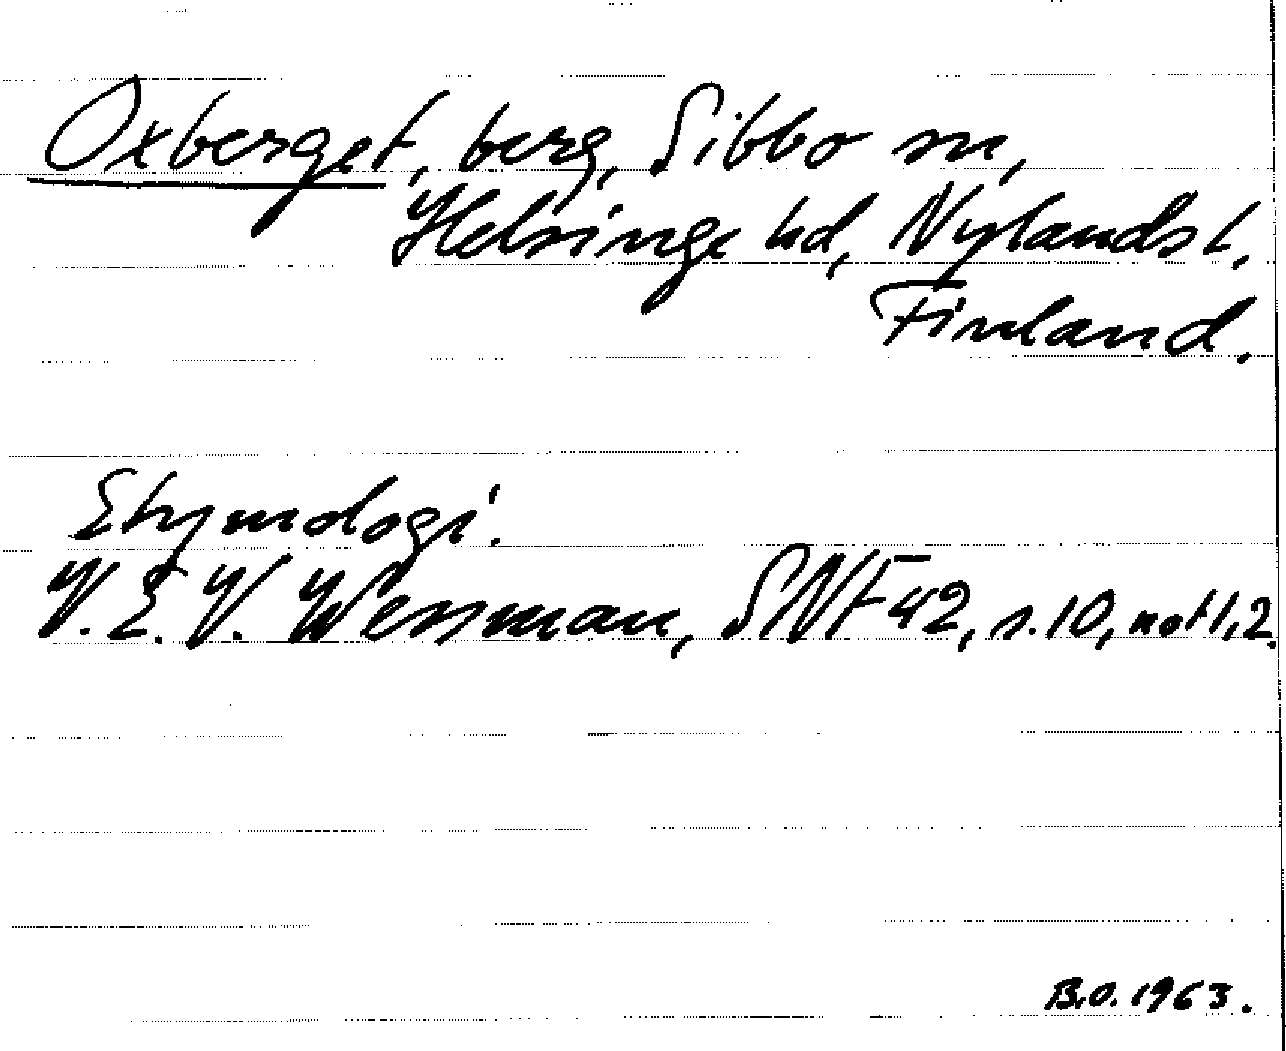 Oxberget, berg, Sibbo sn,
Helsinge hd, Nylands l.
Finland.
Etymologi.
V. E. V. Wessman, SNF 42, s. 10, not 1, 2.
B.O. 1963.